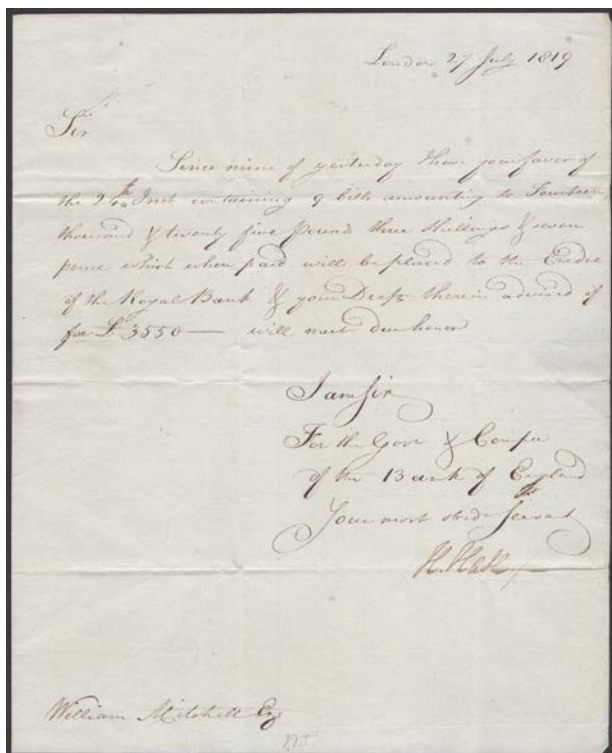 London 27 July 1819
Sir
Since mine of yesterday I have your favor of
the 24th Inst. containing 9 bills amounting to Fourteen
thousand & twenty five pound three shillings & seven
pence which when paid will be placed to the Credit
of the Royal Bank & your Drafts therein advised of
for £3550 — will meet due honor
I am Sir
For the Govr & Compa
of the Bank of England
Your most obedt Servant
William Mitchell Esq